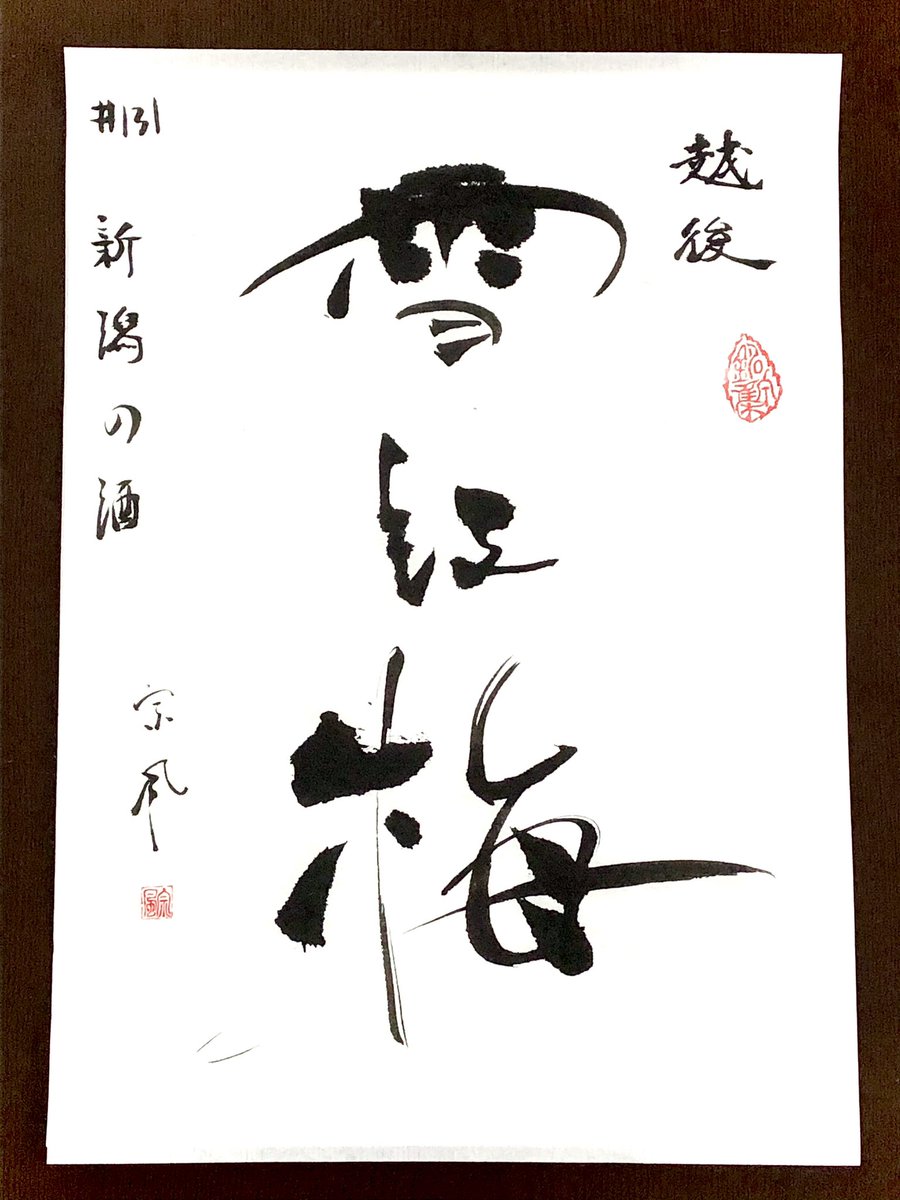 越後
雪紅梅
#131 新潟の酒
宗風
宗風